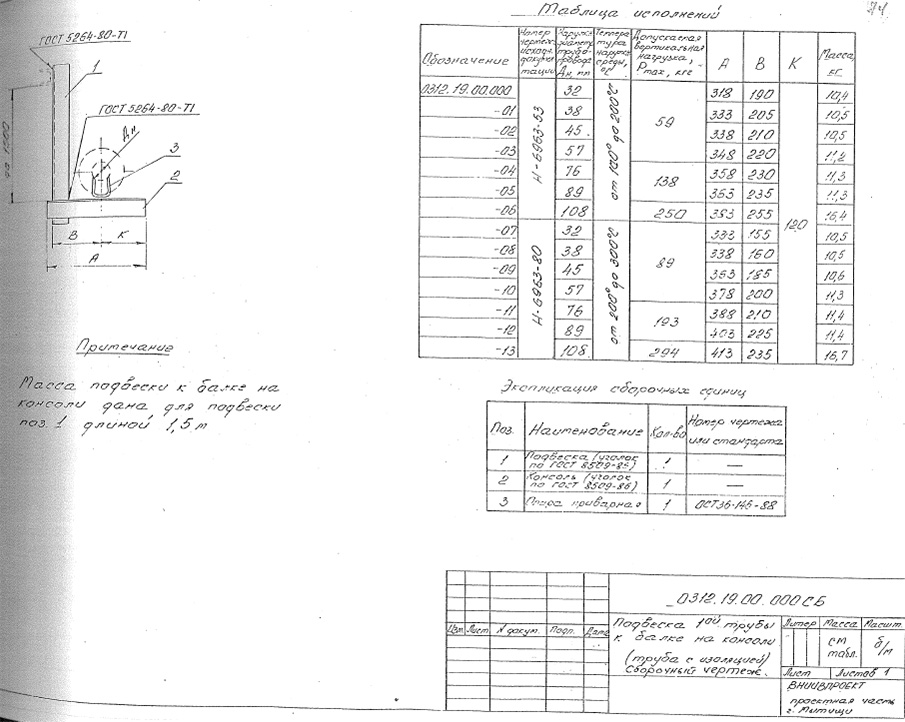 24
Таблица исполнений
Обозначение
Номер чертеж. исходн. докумен тации
Наружн. диаметр трубо- провода Дн, мм
Темпера тура наружн. среды, °С
Допускаемая вертикальная нагрузка, Pmax, кгс
А
В
К
Масса, кг
0312.19.00.000
32
318
190
10,4
-01
38
333
205
10,5
-02
45
338
210
10,5
-03
57
348
220
11,2
-04
76
358
230
11,3
-05
89
363
235
11,3
-06
108
383
255
16,4
-07
32
333
155
10,5
-08
38
338
160
10,5
-09
45
363
185
10,6
-10
57
378
200
11,3
-11
76
388
210
11,4
-12
89
403
225
11,4
-13
108
413
235
16,7
Н-6963-53
Н-6963-80
от 100° до 200°С
от 200° до 300°С
59
138
250
89
193
294
120
ГОСТ 5264-80-Т1
1
ГОСТ 5264-80-Т1
Дн
3
2
до 1500
В
К
А
Примечание
Масса подвески к балке на
консоли дана для подвески
поз. 1 длиной 1,5 м
Экспликация сборочных единиц
Поз.
Наименование
Кол-во
Номер чертежа
или стандарта
1
Подвеска (уголок
по ГОСТ 8509-86)
1
—
2
Консоль (уголок
по ГОСТ 8509-86)
1
—
3
Опора приварная
1
ОСТ36-146-88
0312.19.00.000СБ
Изм Лист N докум. Подп. Дата
Подвеска 1ой трубы
к балке на консоли
(труба с изоляцией)
Сборочный чертеж.
Литер Масса Масшт.
см табл.
б/м
Лист Листов 1
ВНИИВПРОЕКТ
проектная часть
г. Мытищи